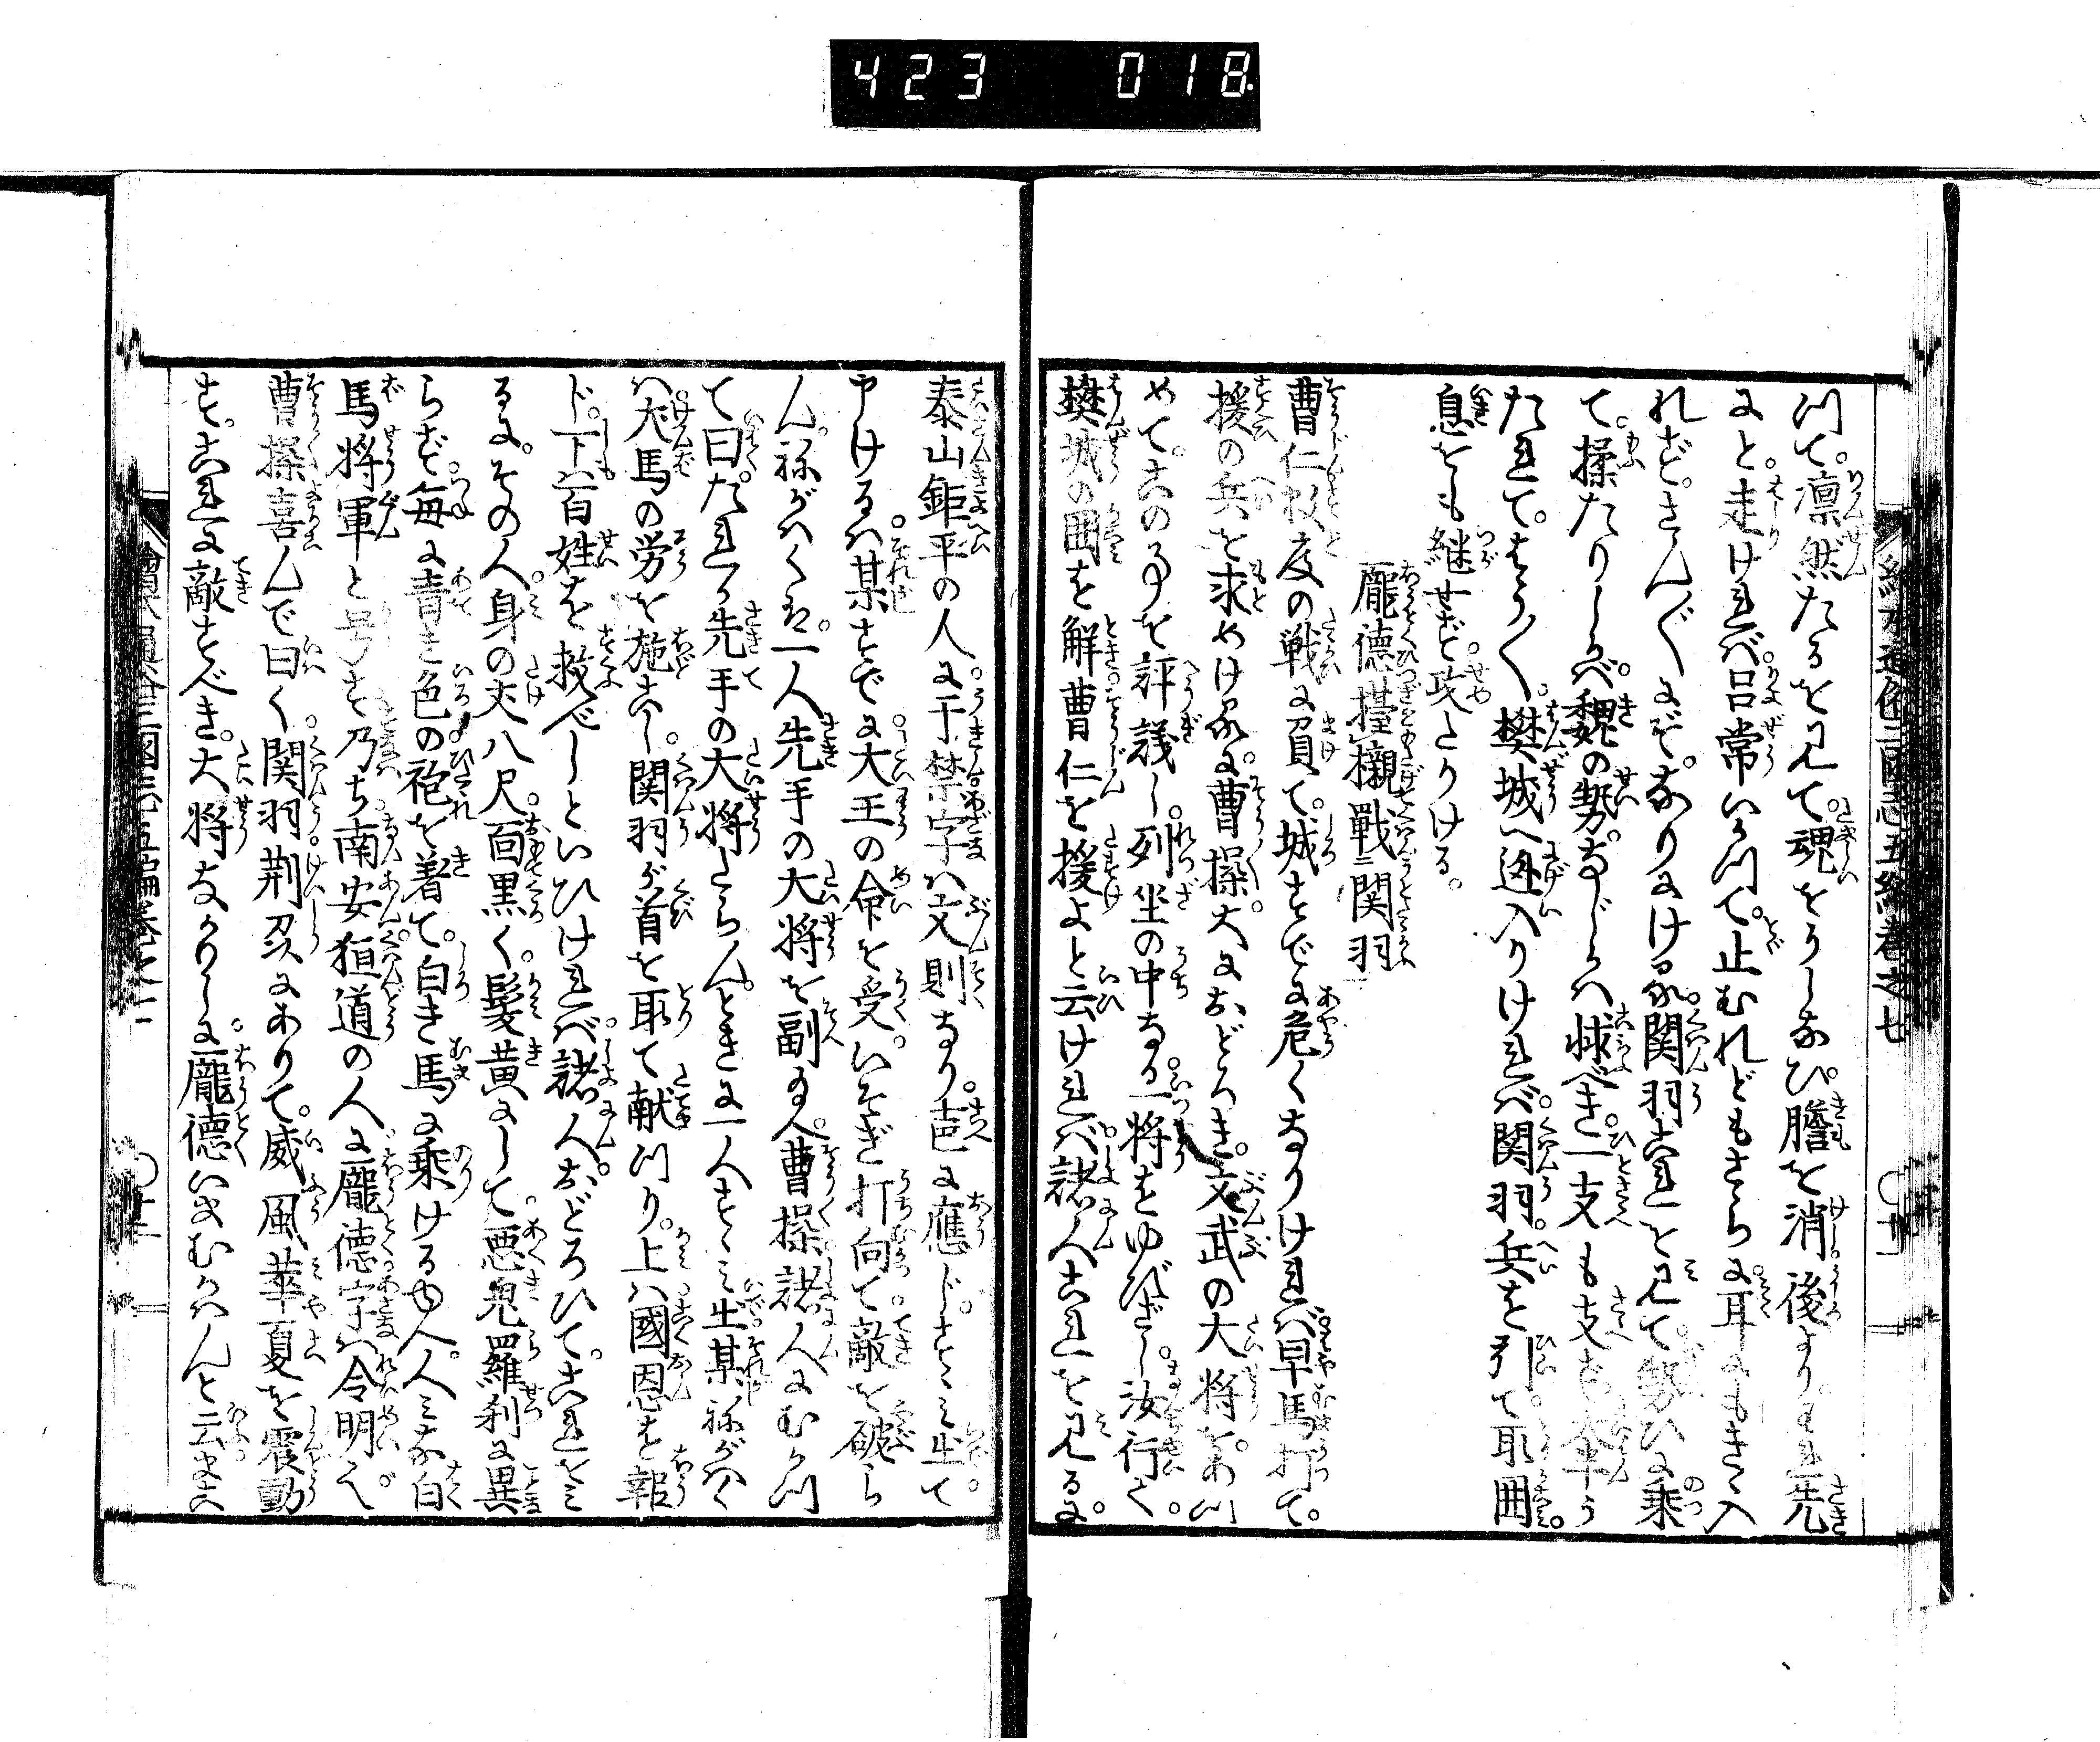 423 018
繪本通俗三國志五編卷之七
つて。凛然たるを見て。魂をうしなひ。膽を消後より。われ先
にと。走ければ。呂常いかつて。止むれどもさらに。耳にもきゝ入
れず。さん〴〵にぞ。なりにける。関羽これを見て。勢ひに乗
て。揉たりしかば。魏の勢。なじかは怺べき。一支も支ず。大半う
たれて。やう〳〵。樊城へ迯入りければ。関羽。兵を引て取囲。
息をも継せず。攻たりける。
龐徳擡櫬戰関羽
曹仁数度の戦に負て。城すでに危くなりければ。早馬打て。
援の兵を求めける。曹操大におどろき。文武の大将をあつ
めて。この事を評議し。列坐の中なる。一将をゆびざし。汝行て。
樊城の囲を解。曹仁を援よと云ければ。諸人これを見るに。
泰山鉅平の人に。于禁字は文則なり。声に應じ。すゝみ出て
申けるは。某すでに。大王の命を受。いそぎ打向て。敵を破ら
ん。ねがはくは。一人先手の大将を副給へ。曹操諸人にむかつ
て曰。たれか先手の大将たらん。ときに一人すゝみ出。某ねがはく
は。犬馬の労を施こし。関羽が首を取て献つり。上は國恩を報
じ。下百姓を救べしといひければ。諸人おどろひて。これをみ
るに。その人身の丈八尺。面黒く。髪黄にして。悪鬼羅刹に異
らず。毎に青き色の袍を着て。白き馬に乗けるゆへ。人みな白
馬將軍と号す。乃ち南安狟道の人に。龐徳字は令明なり。
曹操喜んで曰く。関羽荊州にありて。威風華夏を震動
す。これに敵すべき。大将なかりしに。龐徳いまむかはんと云